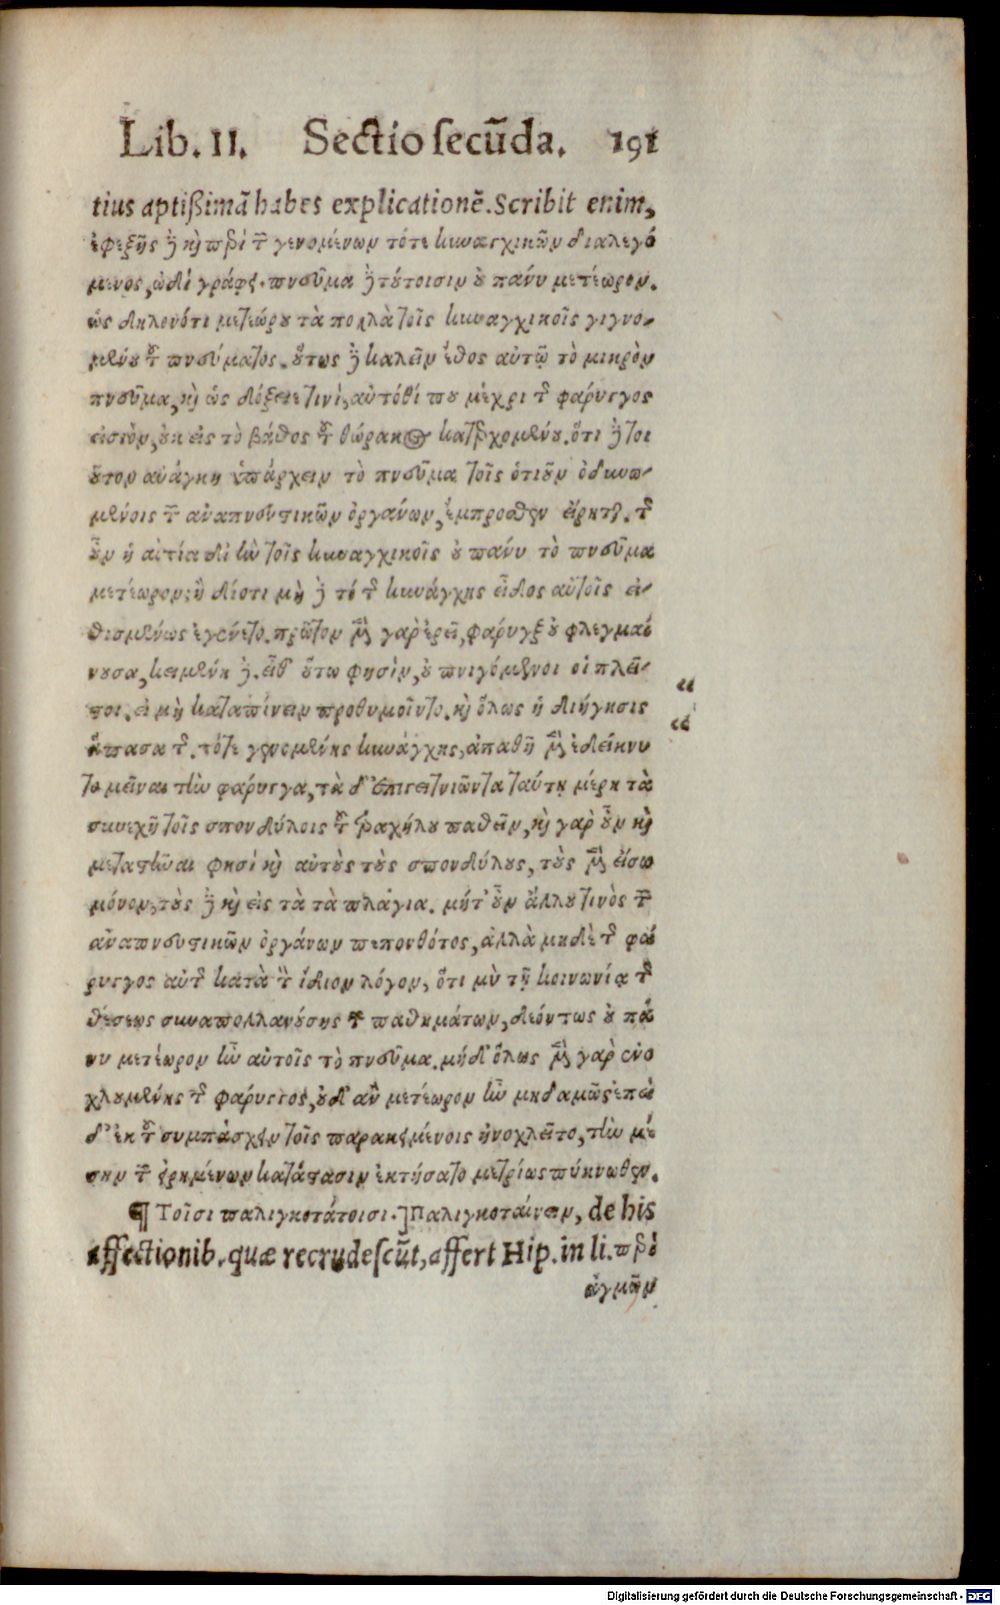 Lib. II. Sectio secūda. 191
tius aptißimā habes explicationē. Scribit enim,
ἐφεξῆς ᾖ κὴ πρὶ τ γενομένων τότε κυναγχικῶν διαλεγό
μενος, ὡδὶ γράφει. πνεῦμα ᾖ τούτοισιν οὐ πάνυ μετέωρον.
ὡς δηλονότι μετεώρου τὰ πολλὰ τοῖς κυναγχικοῖς γιγνο-
μένου τοῦ πνεύματος. οὕτως ᾖ καλεῖν ἔθος αὐτῷ τὸ μικρὸν
πνεῦμα, κὴ ὡς δόξειε τινὶ, αὐτόθί που μέχρι τῆς φάρυγγος
εἰσιὸν, οὐκ εἰς τὸ βάθος τοῦ θώρακος κατερχομένου. ὅτι ᾖ τοι
οῦτον ἀνάγκη ὑπάρχειν τὸ πνεῦμα τοῖς ὁτιοῦν ὀδυνω-
μένοις τῶν ἀναπνευστικῶν ὀργάνων, ἔμπροσθεν εἴρηται. τίς
οὖν ἡ αἰτία δι' ἣν τοῖς κυναγχικοῖς οὐ πάνυ τὸ πνεῦμα
μετέωρον; ἢ διότι μὴ ᾖ τὸ τῆς κυνάγχης εἶδος αὐτοῖς εἰ-
θισμένως ἐγένετο. πρῶτον μὲν γὰρ ἐρεῖ, φάρυγξ οὐ φλεγμαί
νουσα, κειμένη ᾖ. εἶθ' οὕτω φησὶν, οὐ πνιγόμενοι οἱ πλεῖ-
στοι. εἰ μὴ καταπίνειν προθυμοῖντο. κὴ ὅλως ἡ διήγησις
ἅπασα τῆς τότε γενομένης κυνάγχης, ἀπαθῆ μὲν ἐδείκνυ
το μεῖναι τὴν φάρυγγα, τὰ δ' ἐπιγειτνιῶντα ταύτῃ μέρη τὰ
συνεχῆ τοῖς σπονδύλοις τοῦ τραχήλου παθεῖν, κὴ γὰρ οὖν κὴ
μεταστῆναι φησὶ κὴ αὐτοὺς τοὺς σπονδύλους, τοὺς μὲν εἴσω
μόνον, τοὺς ᾖ κὴ εἰς τὰ τὰ πλάγια. μήτ' οὖν ἄλλου τινὸς τῶν
ἀναπνευστικῶν ὀργάνων πεπονθότος, ἀλλὰ μηδὲ τῆς φά
ρυγγος αὐτῆς κατὰ τὸν ἴδιον λόγον, ὅτι μὴ τῇ κοινωνίᾳ τῆς
θέσεως συναπολλαυούσης τῶν παθημάτων, δεόντως οὐ πά
νυ μετέωρον ἦν αὐτοῖς τὸ πνεῦμα. μήδ' ὅλως μὲν γὰρ ἐνο
χλουμένης τῆς φάρυγγος, οὐδ' ἂν μετέωρον ἦν μηδαμῶς, ἐπεὶ
δ' ἐκ τοῦ συμπάσχειν τοῖς παρακειμένοις ἠνοχλεῖτο, τὴν μέ
σην τῶν εἰρημένων κατάστασιν ἐκτήσατο μετρίως πύκνωθεν.
¶ Τοῖσι παλιγκοτάτοισι. ] Παλιγκοταίνειν, de his
affectionib. quæ recrudescūt, affert Hip. in li. πρὶ
ἀγμῶν
“
“
Digitalisierung gefördert durch die Deutsche Forschungsgemeinschaft - DFG